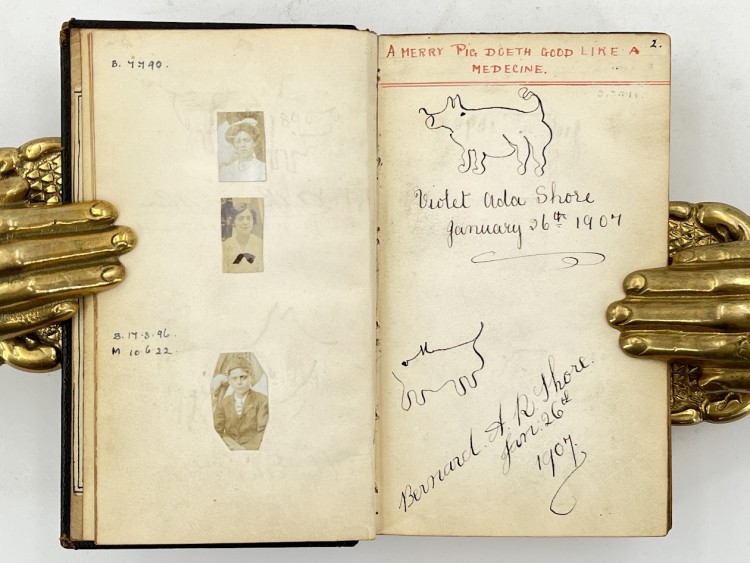 B. 7.7.90.
B. 17.3.96.
M. 10.6.22.
2.
A MERRY PIG DOETH GOOD LIKE A
MEDECINE.
Violet Ada Shore
January 26th 1907
Bernard. A. R Shore.
Jan: 26th
1907.